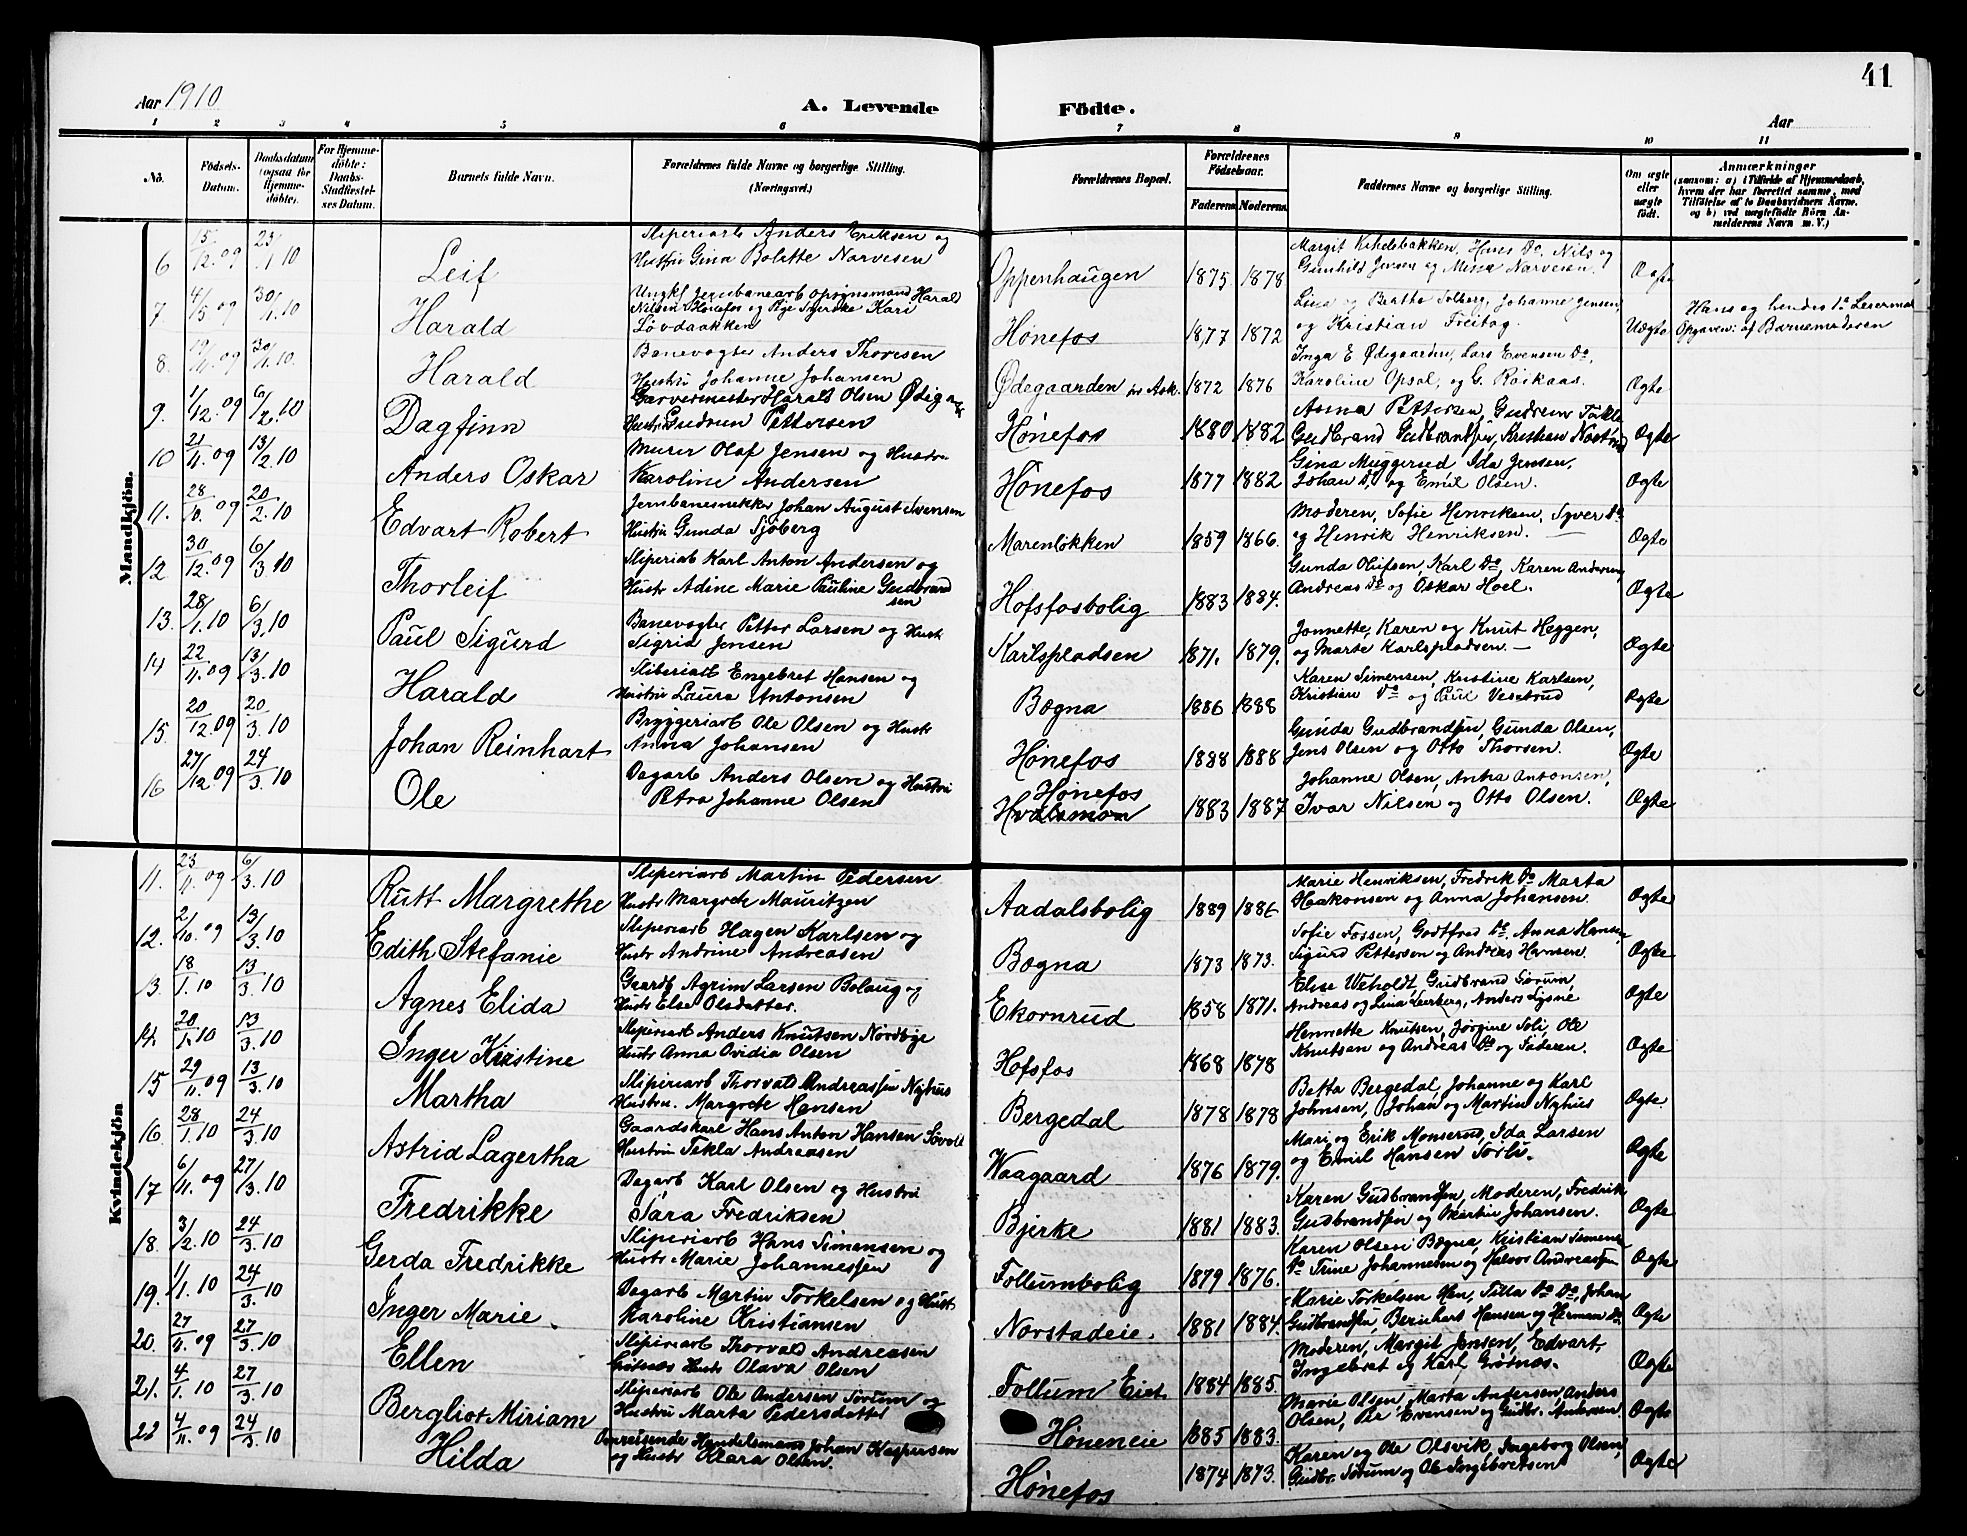 41
Aar 1910
A. Levende Födte.
Aar
1 2 3 4 5 6 7 8 9 10 11
No. Födsels-Datum. Daabsdatum (ogsaa for Hjemmedöbte). For Hjemmedöbte: Daabs-Stadfæstelses Datum. Barnets fulde Navn. Forældrenes fulde Navne og borgerlige Stilling. (Næringsvei.) Forældrenes Bopæl. Forældrenes Födselsaar. Faderens Moderens Faddernes Navne og borgerlige Stilling. Om ægte eller uægte födt. Anmærkninger (saasom: a) i Tilfælde af Hjemmedaab, hvem der har forrettet samme, med Tilföielse af to Daabsvidners Navne. og b) ved uægtefödte Börn Anmelderens Navn m. V.)
Mandkjön.
6 15/12.09 23/1.10 Leif Sliperiarb Anders Eriksen og Hustru Gina Bolette Narvesen Oppenhaugen 1875 1878 Margit Kihelsbakken, Hans Do, Nils og Gunhild Jensen og Mina Narvesen. Ægte
7. 4/5 09 30/1.10 Harald Ungkf Jernbanearb opsynsmand Harald Nilsen Hønefos og Pige Kari Løvdaakken Hønefos 1877 1872 Lina og Bertha Solberg, Johanne Jensen, og Kristian Freitag. Uægte Hans og hendes 1ste Leiermaal Opgaven: af Barnemoderen
8. 19/11.09 30/1.10 Harald Banevogter Anders Thoresen Hustru Johanne Johansen Ødegaarden pr Ask. 1872 1876 Inga E Ødegaarden, Lars Evensen Do, Karoline Opsal, og G. Röikaas. Ægte
9. 1/12.09 6/2.10 Dagfinn Garvermester Harald Olsen Hustru Gudrun Pettersen Hønefos 1880 1882 Anna Pettersen, Gudrun Gudbrand Gudbrandsen, Kristian Ægte
10 21/11.09 13/2.10 Anders Oskar Murer Olaf Jensen og Hustru Karoline Andersen Hønefos 1877 1882 Gina Muggerud Ida Jensen, Johan Do og Emil Olsen. Ægte
11. 28/10.09 20/2.10 Edvart Robert Jernbanesnekker Johan August Svensen Hustru Gunda Sjöberg Marenløkken 1859 1866. Moderen, Sofie Henriksen, Syver Do og Henrik Henriksen. Ægte
12. 30/12.09 6/3.10 Thorleif Sliperiarb Karl Anton Andersen og Hustr Adine Marie Pauline Gudbrandsen Hofsfosbolig 1883 1884. Gunda Olufsen, Karl Do, Karen Andersen, Andreas Do og Oskar Hoel. Ægte
13. 28/1.10 6/3.10 Paul Sigurd Banevogter Petter Larsen og Hust Sigrid Jensen Karlspladsen 1871. 1879. Jonnette, Karen og Knut Heggen, og Marte Karlspladsen. Ægte
14 22/11.09 13/3.10 Harald Sliberiarb Engebret Hansen og Hustru Laura Antonsen Bægna 1886 1888 Karen Simensen, Kristine Karlsen, Kristian Do og Paul Veseterud Ægte
15. 20/12.09 20/3.10 Johan Reinhart Bryggeriarb Ole Olsen og Hustr Anna Johansen Hønefos 1888 1888 Gunda Gudbrandsen, Gunda Olsen, Jens Olsen og Otto Thorsen. Ægte
16 27/12 09 24/3.10 Ole Dagarb Anders Olsen og Hustru Petra Johanne Olsen Hønefos Hvalsmoen 1883 1887 Johanne Olsen, Anna Antonsen, Ivar Nilsen og Otto Olsen. Ægte
Kvindekjön
11. 23/11.09 6/3.10 Rutt Margrethe Sliperiarb Martin Pedersen Hustr Margrete Mauritzen Aadalsbolig 1889 1886 Marie Henriksen, Fredrik Do Marta Haakonsen og Anna Johansen. Ægte
12. 2/10.09 13/3.10 Edith Stefanie Sliperiarb Hagen Karlsen og Hustr Andrine Andreasen Bægna 1873 1873. Sofie Fossen, Godtfred Do. Anna Hansen, Sigurd Pettersen og Andreas Hansen. Ægte
13. 18/1.10 13/3.10 Agnes Elida Gaardb Agrim Larsen Bolaug og Hustr Else Olsdatter. Ekornrud 1858 1871. Else Weholdt, Gudbrand Sørum, Andreas og Lina Leerberg, Anders Lysne Ægte
14. 20/1.10 13/3.10 Inger Kristine Sliperiarb Anders Knutsen Nordbye Hustr Anna Ovidia Olsen Hofsfos 1868 1878 Henriette Knutsen, Jørgine Soli, Ole Knutsen og Andreas Do og Faderen. Ægte
15 29/11.09 13/3.10 Martha Sliperiarb Thorvald Andreassen Nyhus Hustru. Margrete Hansen Bergedal 1878 1878 Betta Bergedal, Johanne og Karl Johnsen, Johan og Martin Nyhus Ægte.
16 28/1.10 24/3.10 Astrid Lagertha Gaardskarl Hans Anton Hansen Hustru Tekla Andreasen Waagaard 1876 1879. Mari og Erik Monserud, Ida Larsen og Emil Hansen Sørli. Ægte
17 6/11.09 27/3.10 Fredrikke Dagarb Karl Olsen og Hustru Sara Fredriksen Bjerke 1881 1883. Karen Gudbrandsen, Moderen, Fredrik Gudbrandsen og Martin Johansen. Ægte
18. 3/2.10 24/3.10 Gerda Fredrikke Sliperiarb Hans Simensen og Hustr Marie Johannessen Follumbolig 1879 1876. Karen Olsen Bægna, Kristian Simensen Do Trine Johannesen og Halvor Andreassen Ægte
19. 11/1.10 24/3.10 Inger Marie. Dagarb Martin Torkelsen og Hustr Karoline Kristiansen Norstadeie. 1881 1884. Marie Torkelsen Hen, Tilla Do Do, Johan Gudbrandsen, Bernhart Hansen og Herman Do. Ægte
20. 27/11.09 27/3.10 Ellen Sliperiarb Thorvald Andreasen Grøtnæs Hustr Olava Olsen Follum Eiet 1884 1885. Moderen, Margit Jensen, Edvart, Ingebret og Karl Grøtnæs. Ægte
21. 4/1.10 27/3.10 Bergliot Miriam Sliperiarb Ole Andersen Sørum og Hustru Marta Pedersdatter Høneneie 1885 1883. Marie Olsen, Marta Andersen, Anders Olsen, Per Evensen og Gudbr. Andersen. Ægte
22 4/11.09 24/3.10 Hilda Omreisende Handelsmand Johan Kaspersen og Hustr Klara Olsen. Hønefos 1874 1873. Karen og Ole Olsvik, Ingeborg Olsen, Gudbr. Sørum og Ole Ingebretsen Ægte